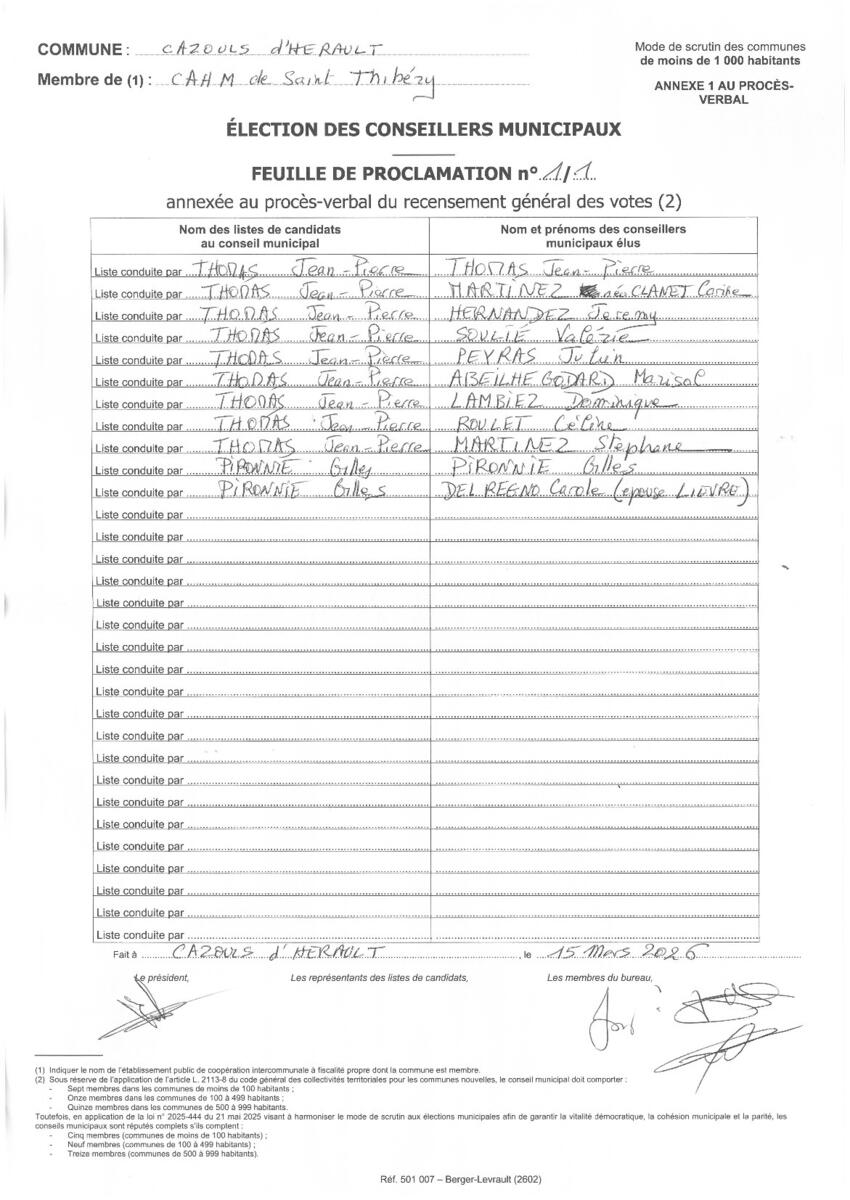 COMMUNE : CAZOULS d'HERAULT
Mode de scrutin des communes
de moins de 1 000 habitants
Membre de (1) : CAHM de Saint Thibéry
ANNEXE 1 AU PROCÈS-
VERBAL
ÉLECTION DES CONSEILLERS MUNICIPAUX
FEUILLE DE PROCLAMATION n° 1/1
annexée au procès-verbal du recensement général des votes (2)
Nom des listes de candidats
au conseil municipal
Nom et prénoms des conseillers
municipaux élus
Liste conduite par THOMAS Jean-Pierre THOMAS Jean-Pierre
Liste conduite par THOMAS Jean-Pierre MARTINEZ née CLANET Carine
Liste conduite par THOMAS Jean-Pierre HERNANDEZ Jeremy
Liste conduite par THOMAS Jean-Pierre SOULIÉ Valérie
Liste conduite par THOMAS Jean-Pierre PEYRAS Julien
Liste conduite par THOMAS Jean-Pierre ABEILHE GODARD Marisol
Liste conduite par THOMAS Jean-Pierre LAMBIEZ Dominique
Liste conduite par THOMAS Jean-Pierre ROULET Céline
Liste conduite par THOMAS Jean-Pierre MARTINEZ Stéphane
Liste conduite par PIRONNIE Gilles PIRONNIE Gilles
Liste conduite par PIRONNIE Gilles DEL REGNO Carole (épouse LIEVRE)
Liste conduite par
Liste conduite par
Liste conduite par
Liste conduite par
Liste conduite par
Liste conduite par
Liste conduite par
Liste conduite par
Liste conduite par
Liste conduite par
Liste conduite par
Liste conduite par
Liste conduite par
Liste conduite par
Liste conduite par
Liste conduite par
Liste conduite par
Liste conduite par
Liste conduite par
Liste conduite par
Fait à CAZOULS d'HERAULT, le 15 Mars 2026
Le président,
Les représentants des listes de candidats,
Les membres du bureau,
(1) Indiquer le nom de l'établissement public de coopération intercommunale à fiscalité propre dont la commune est membre.
(2) Sous réserve de l'application de l'article L. 2113-8 du code général des collectivités territoriales pour les communes nouvelles, le conseil municipal doit comporter :
- Sept membres dans les communes de moins de 100 habitants ;
- Onze membres dans les communes de 100 à 499 habitants ;
- Quinze membres dans les communes de 500 à 999 habitants.
Toutefois, en application de la loi n° 2025-444 du 21 mai 2025 visant à harmoniser le mode de scrutin aux élections municipales afin de garantir la vitalité démocratique, la cohésion municipale et la parité, les
conseils municipaux sont réputés complets s'ils comptent :
- Cinq membres (communes de moins de 100 habitants) ;
- Neuf membres (communes de 100 à 499 habitants) ;
- Treize membres (communes de 500 à 999 habitants).
Réf. 501 007 – Berger-Levrault (2602)